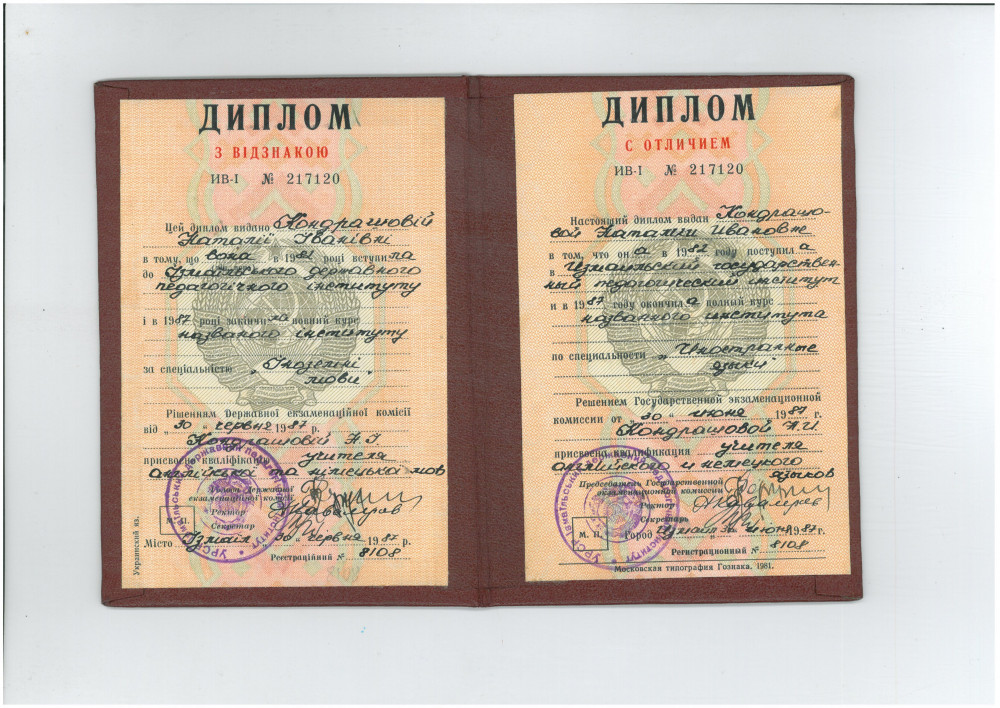 ДИПЛОМ
З ВІДЗНАКОЮ
ИВ-І № 217120
Цей диплом видано Кондрашовій
Наталії Іванівні
в тому, що вона в 1982 році вступила
до Ізмаїльського державного
педагогічного інституту
і в 1987 році закінчила повний курс
названого інституту
за спеціальністю „Іноземні
мови"
Рішенням Державної екзаменаційної комісії
від „30" червня 1987 р.
Кондрашовій Н.І.
присвоєно кваліфікацію учителя
англійської та німецької мов
Голова Державної
екзаменаційної комісії
Ректор
Секретар
М. П.
Місто Ізмаїл „30" червня 1987 р.
Реєстраційний № 8108
Украинский яз.
ДИПЛОМ
С ОТЛИЧИЕМ
ИВ-I № 217120
Настоящий диплом выдан Кондрашо-
вой Наталии Ивановне
в том, что она в 1982 году поступила
в Измаильский государствен-
ный педагогический институт
и в 1987 году окончила полный курс
названного института
по специальности „Иностранные
языки"
Решением Государственной экзаменационной
комиссии от „30" июня 1987 г.
Кондрашовой Н.И.
присвоена квалификация учителя
английского и немецкого
языков
Председатель Государственной
экзаменационной комиссии
Ректор
Секретарь
М. П. Город Измаил „30" июня 1987 г.
Регистрационный № 8108
Московская типография Гознака. 1981.